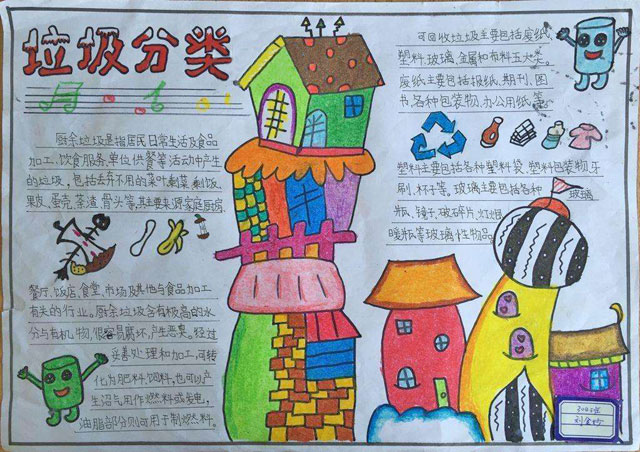 垃圾分类
厨余垃圾是指居民日常生活及食品
加工、饮食服务、单位供餐等活动中产生
的垃圾，包括丢弃不用的菜叶、剩菜、剩饭、
果皮、蛋壳、茶渣、骨头等，其主要来源家庭厨房、
餐厅、饭店、食堂、市场及其他与食品加工
有关的行业。厨余垃圾含有极高的水
分与有机物，很容易腐坏，产生恶臭。经过
妥善处理和加工，可转
化为肥料、饲料，也可以产
生沼气用作燃料或发电，
油脂部分则可用于制燃料。
可回收垃圾主要包括废纸、
塑料、玻璃、金属和布料五大类。
废纸主要包括报纸、期刊、图
书、各种包装物、办公用纸等
塑料主要包括各种塑料袋、塑料包装物、牙
刷、杯子等，玻璃主要包括各种
玻璃
瓶、镜子、破碎片、灯泡
暖瓶等玻璃性物品
304班